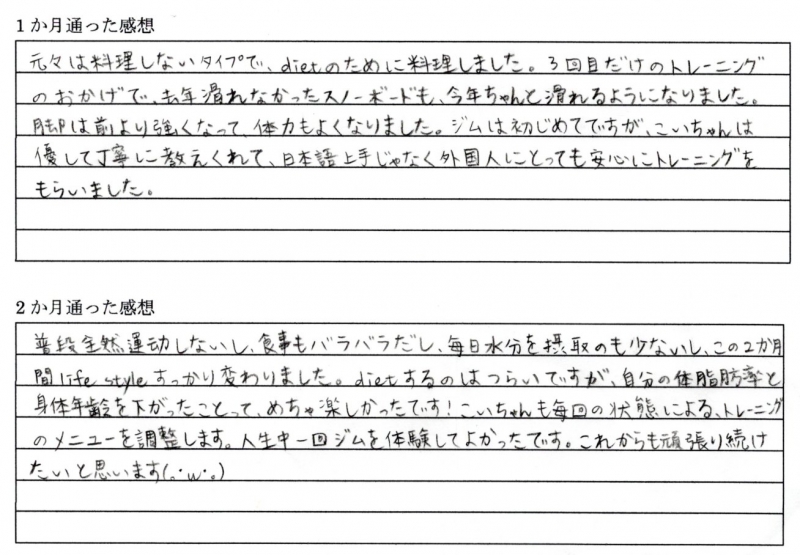 1か月通った感想
元々は料理しないタイプで、dietのために料理しました。3回目だけのトレーニング
のおかげで、去年滑れなかったスノーボードも、今年ちゃんと滑れるようになりました。
脚は前より強くなって、体力もよくなりました。ジムは初じめてですが、こいちゃんは
優して丁寧に教えくれて、日本語上手じゃなく外国人にとっても安心にトレーニングを
もらいました。
2か月通った感想
普段全然運動しないし、食事もバラバラだし、毎日水分を摂取のも少ないし、この2か月
間life styleすっかり変わりました。dietするのはつらいですが、自分の体脂肪率と
身体年齢を下がったことって、めちゃ楽しかったです!こいちゃんも毎回の状態による、トレーニング
のメニューを調整します。人生中一回ジムを体験してよかったです。これからも頑張り続け
たいと思います(｡･ω･｡)